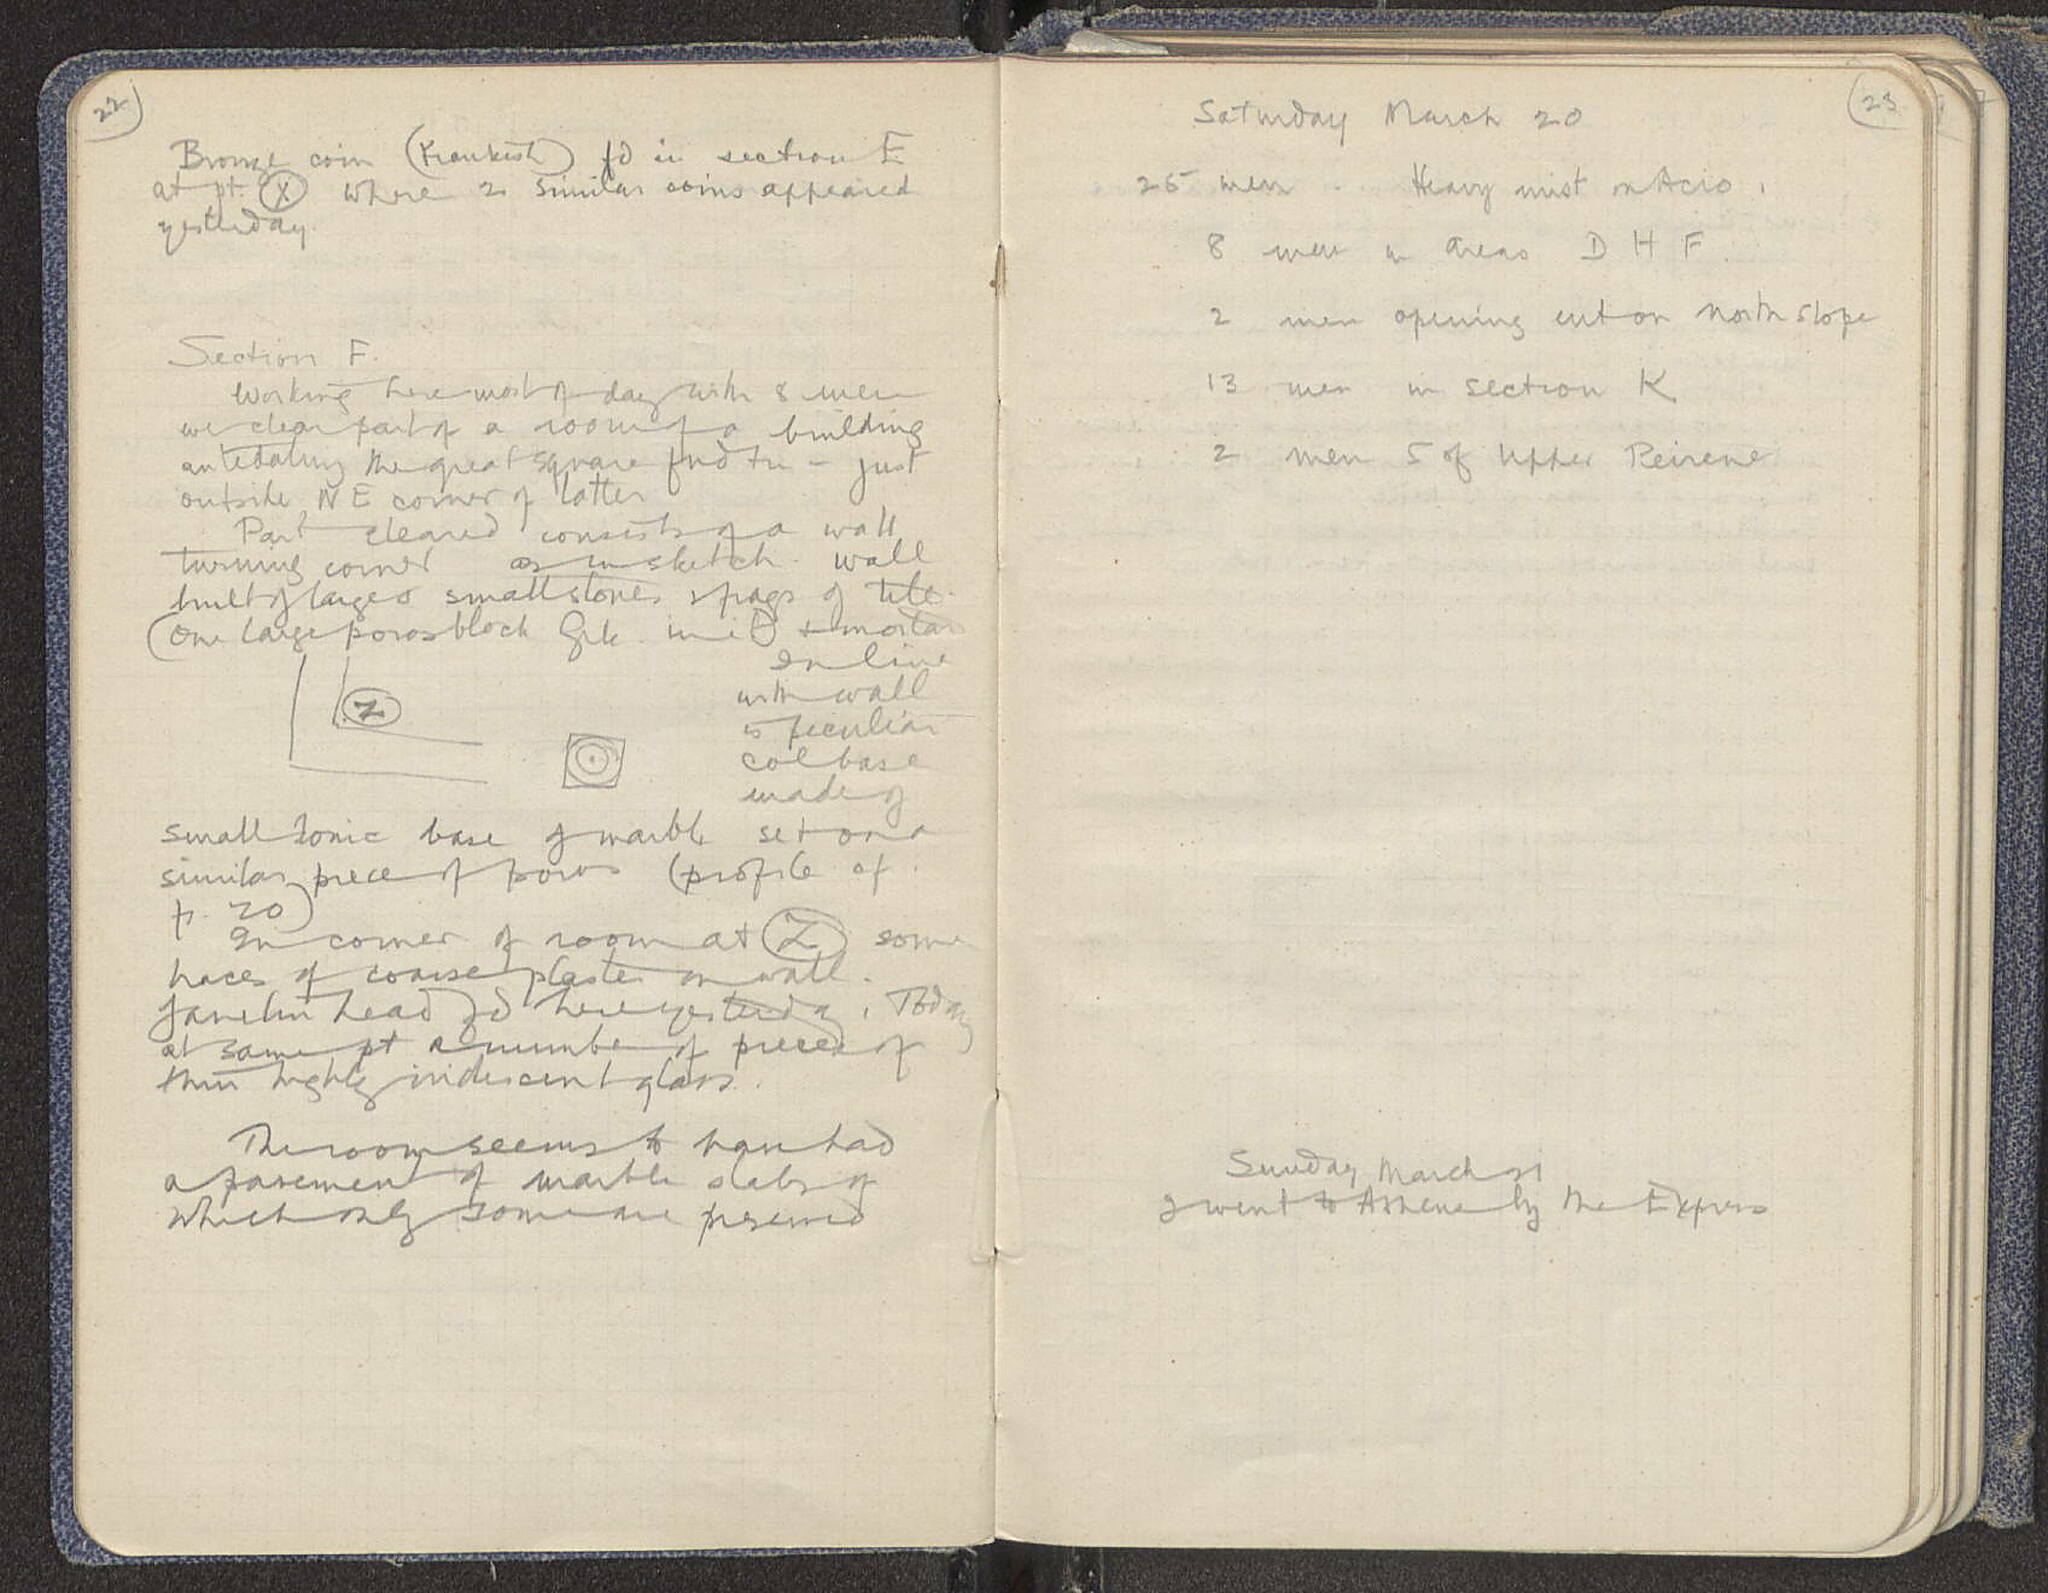 22
Bronze coin (Frankish) fd in section E
at pt. X where 2 similar coins appeared
yesterday.
Section F.
Working here most of day with 8 men
we clear part of a room of a building
antedating the great square fndtn - just
outside NE corner of latter
Part cleared consists of a wall
turning corner as in sketch. wall
built of large & small stones & frags of tile.
(One large poros block Grk. in it) & mortar
Z
In line
with wall
is peculiar
col base
made of
small Ionic base of marble set on a
similar piece of poros (profile cf.
p. 20)
In corner of room at Z some
traces of coarse plaster on wall.
Javelin head fd here yesterday. Today
at same pt a number of pieces of
thin highly iridescent glass.
The room seems to have had
a pavement of marble slabs of
which only some are preserved
23
Saturday March 20
25 men. Heavy mist on Acro.
8 men in areas D H F.
2 men opening cut on North slope
13 men in section K
2 men S of Upper Peirene
Sunday March 21
I went to Athens by the Express